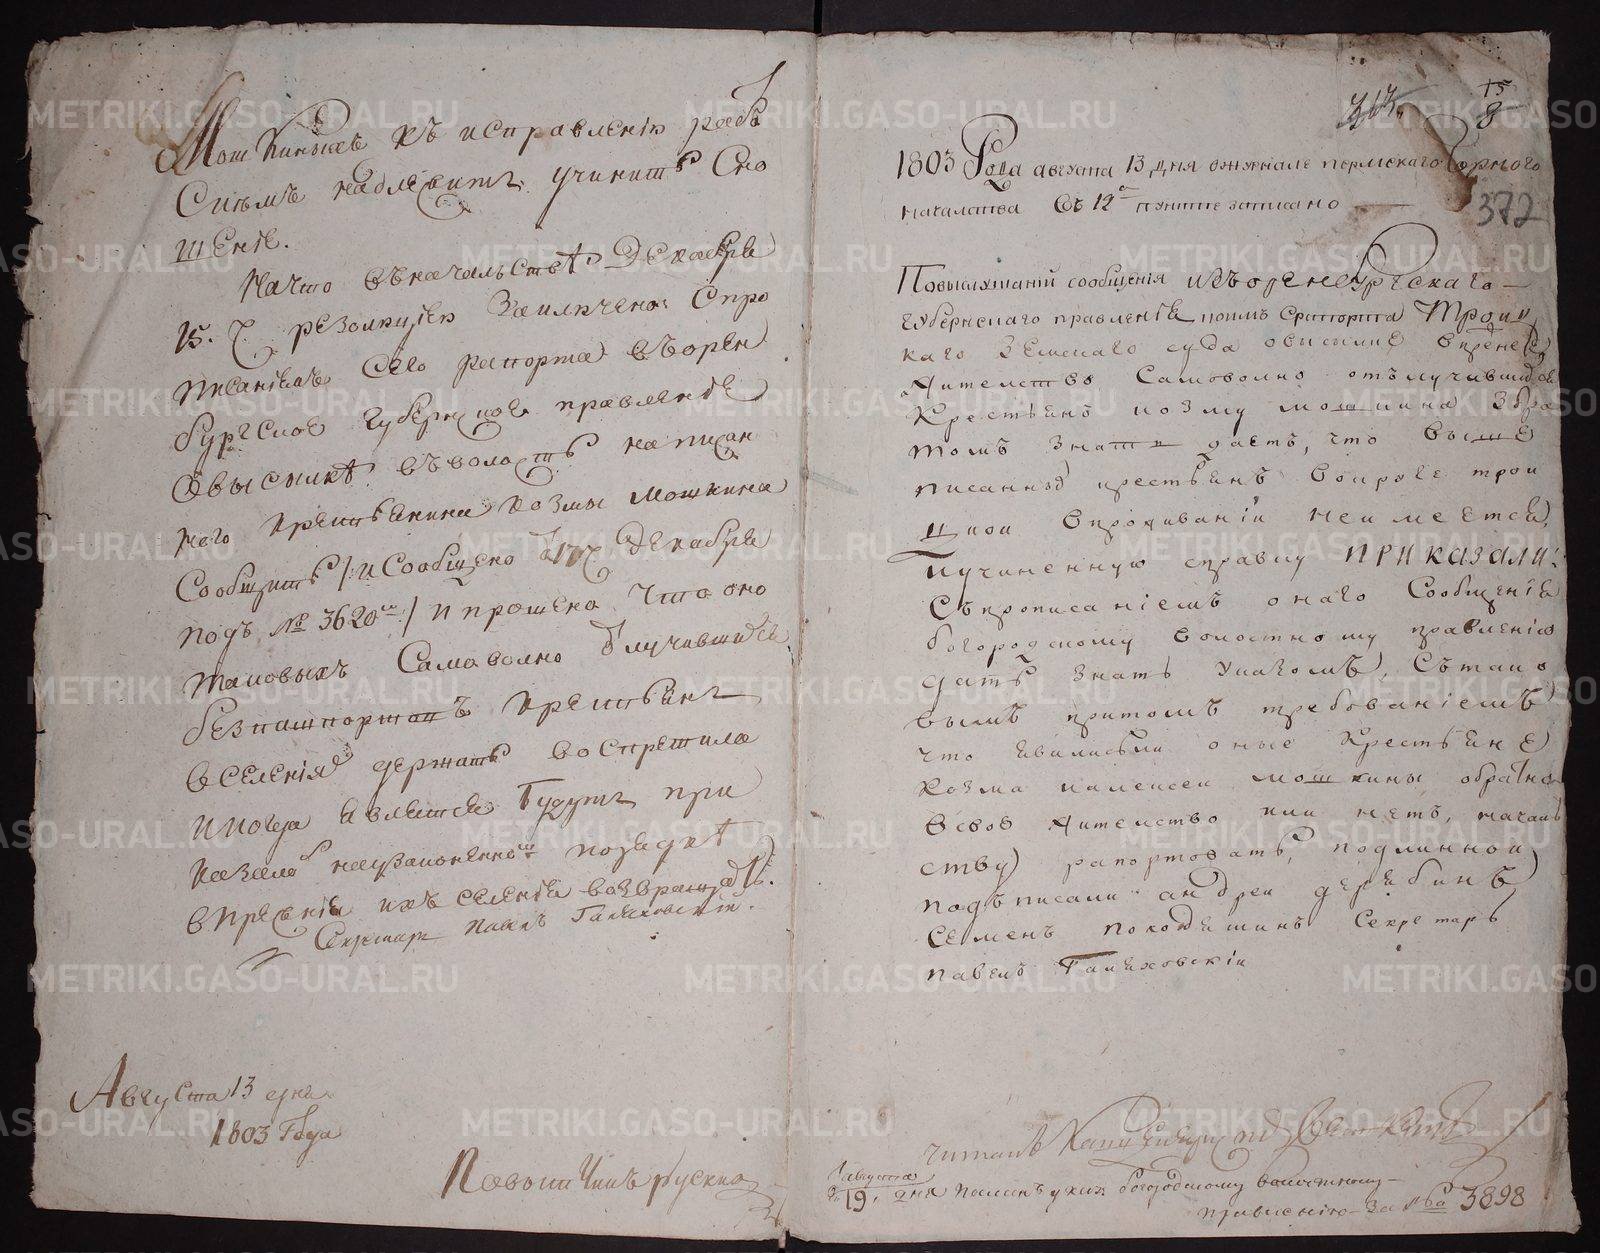 Мошкиныхъ къ исправленію рабо
Симъ надлежитъ учинить Сно
шеніе.
На что въ начальстве Декабря
15. ч. резолюціею Заключено: С про
писаніемъ Сего рапорта въ орен
бургское губернское правленіе
О высылке въ волость на писан
ного крестьянина козмы мошкина
Сообщить / и Сообщено 17 ч Декабря
подъ № 3620 м / и прошено Чтобъ оно
таковыхъ Самоволно отлучившихся
безпашпортовъ крестьянъ
в селенія держать воспретила
и когда являтся будутъ при
казала на узаконенномъ порядке
в прежнія ихъ селенія возвращать.
Секретарь Павелъ Галяховскій.
Августа 13 дня
1803 Года
Повытчикъ
1803 Года августа 13 дня в журнале пермскаго Горного
началства въ 12 м пункте записано
372
15
8
По выслушаній сообщенія изъ оренбургскаго
губернскаго правленія коимъ Срапорта Троиц
каго Земскаго суда о высылке в прежнее
жителство Самоволно отълучившихся
Крестьянъ козму мошкина з бра
томъ знать даетъ, что выше
писанной крестьянъ в округе трои
цкой в проживаніи не имеется,
и учиненную справку ПРИКАЗАЛИ:
Съ прописаніемъ онаго Сообщенія
богородскому волостному правленію
дать знать Указомъ, Съ тако
вымъ притомъ требованіемъ
что явились ли оные Крестьяне
Козма и алексеи мошкины обратно
в свое жителство или нетъ, началь
ству рапортовать, подлинной
подъписали андреи дерябинъ
Семенъ Секретарь
павелъ Галяховскіи
Читалъ Канцеляристъ
августа
19, дня посланъ указъ богородскому волостному
правленію за № 3898
METRIKI.GASO-URAL.RU